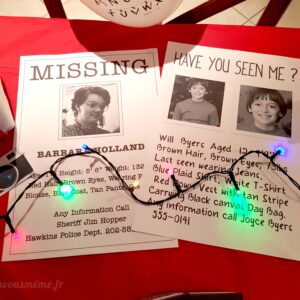 MISSING
BARBARA HOLLAND
Height: 5' 6" Weight: 132
Hair Brown Eyes, Wearing P
Blouse, Blue Coat, Tan Pants
Any Information Call
Sheriff Jim Hopper
Hawkins Police Dept. 202-55
HAVE YOU SEEN ME ?
Will Byers Aged 12
Brown Hair, Brown Eyes, 73lbs
Last seen wearing Jeans,
Blue Plaid Shirt, White T-Shirt
Red Down Vest with tan stripe
Carrying Black canvas Day Bag.
Any information call Joyce Byers
555-0141
vousmême.fr